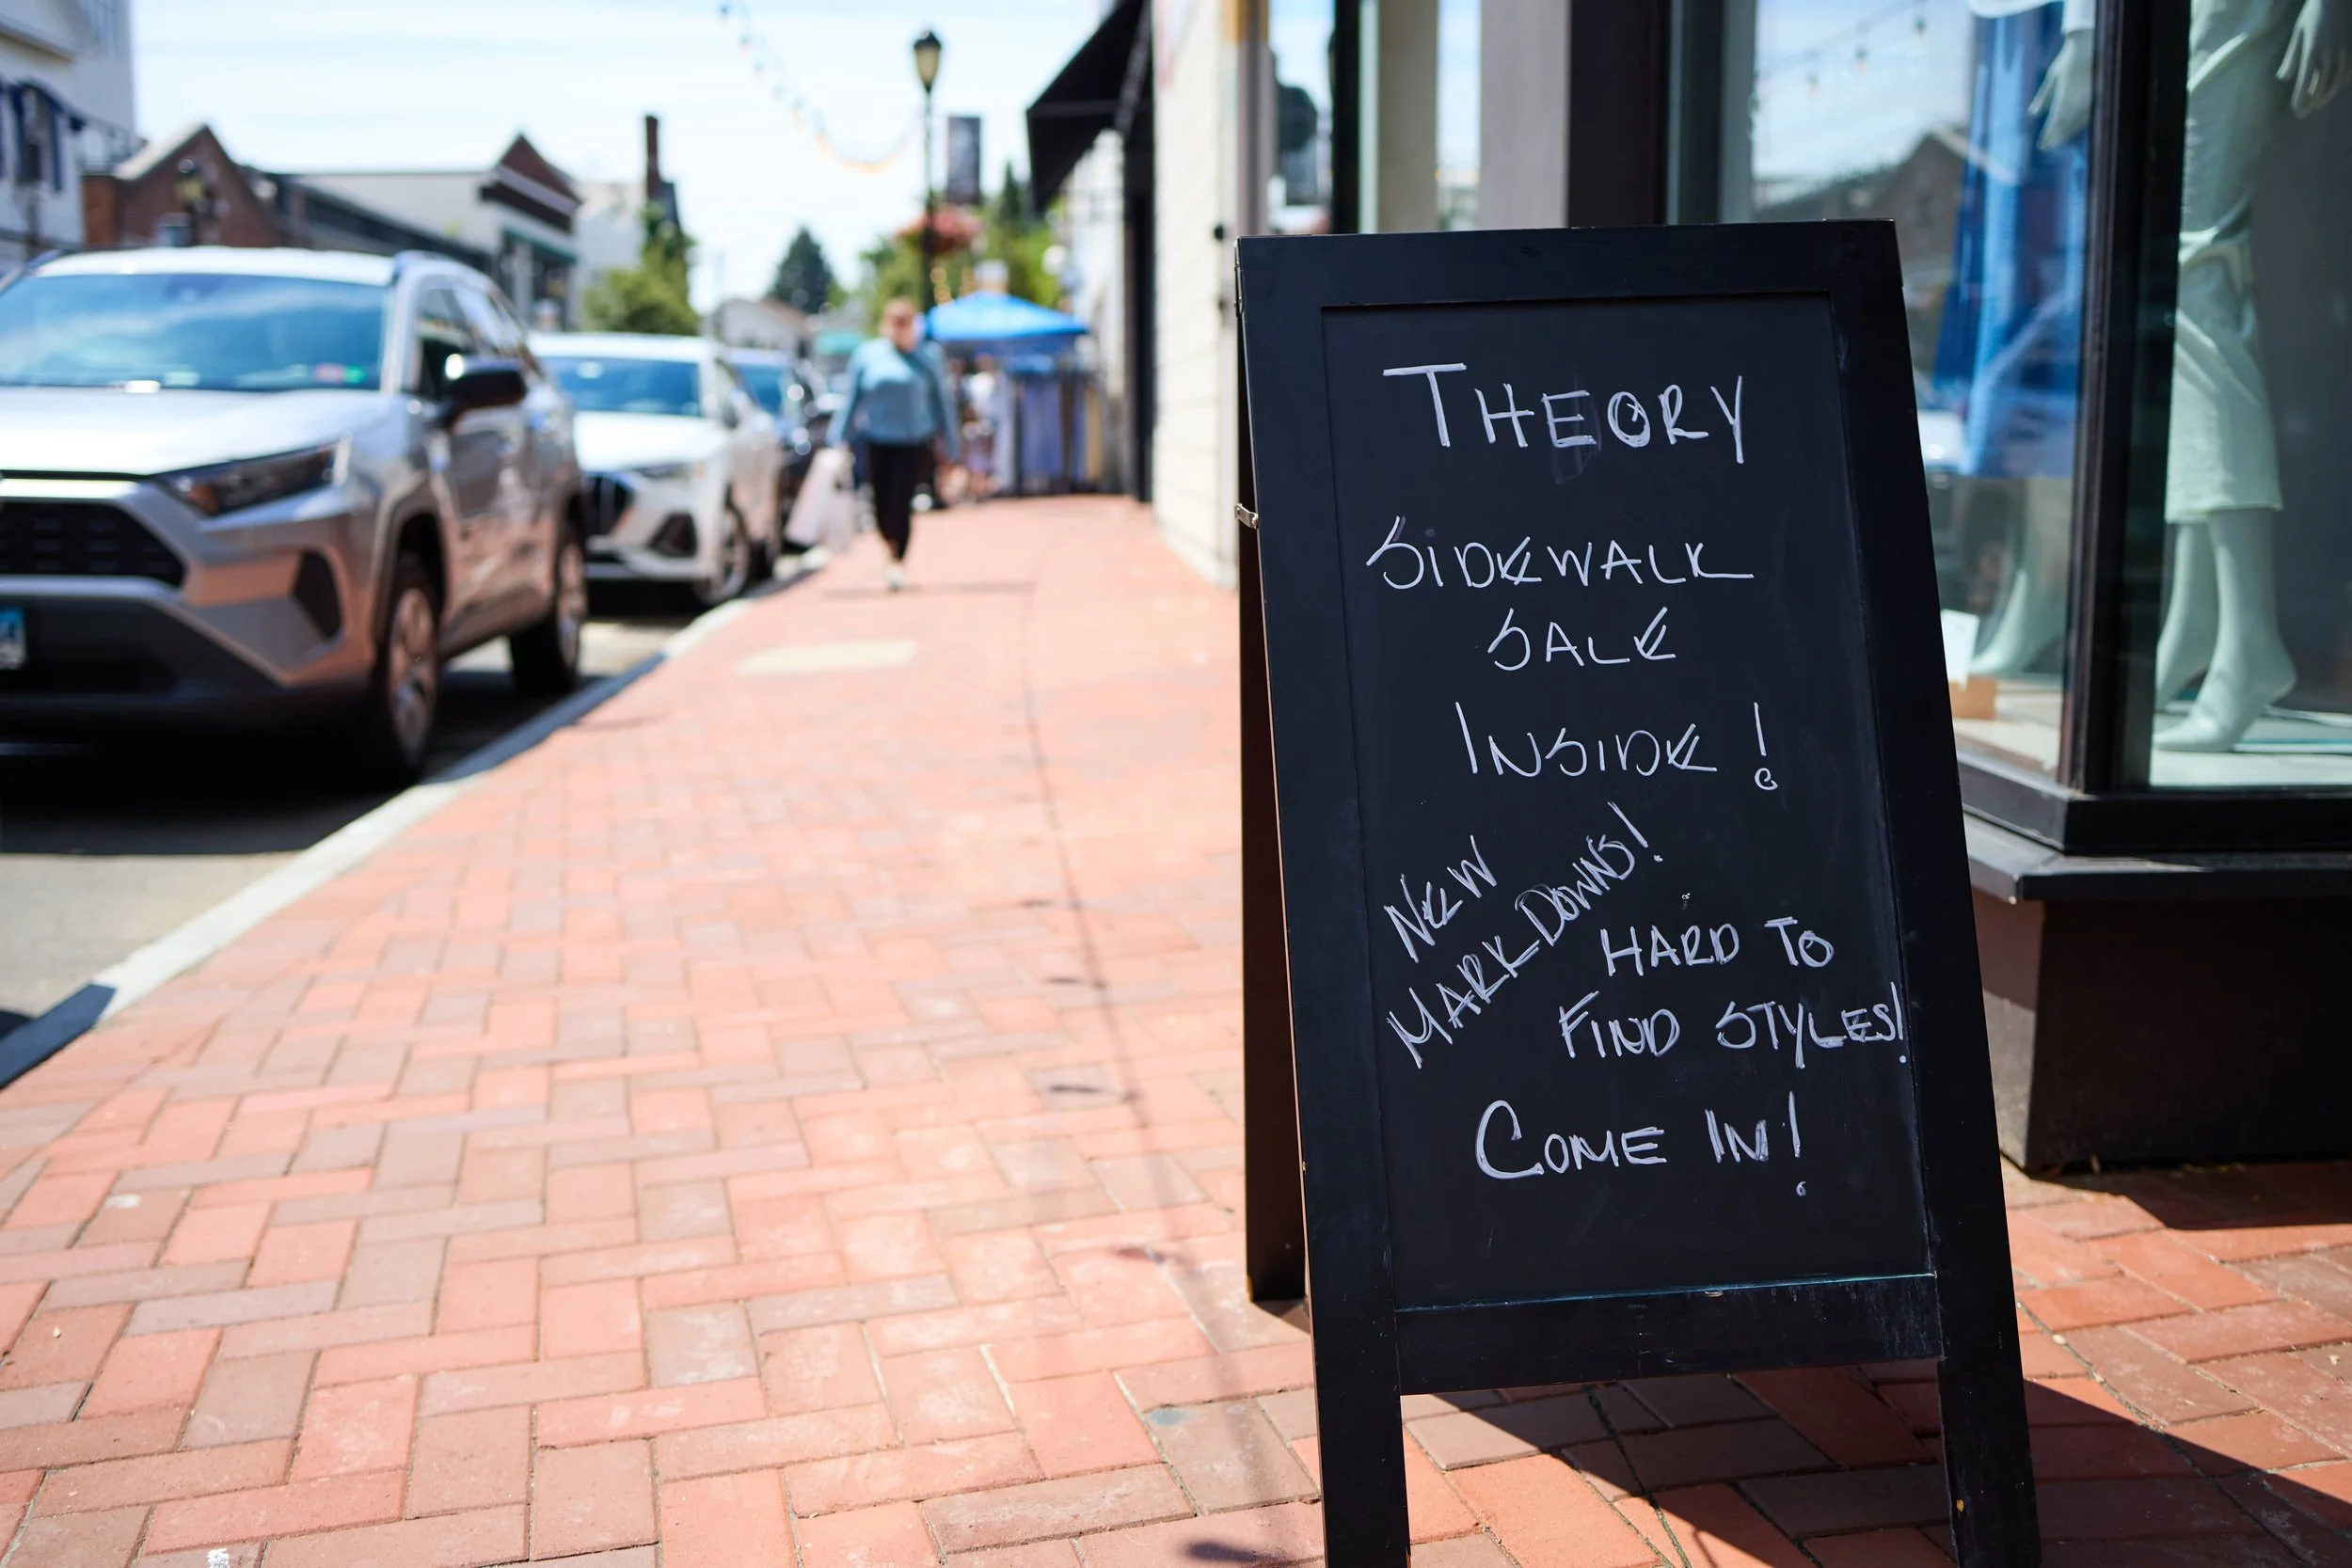 THEORY
SIDEWALK
SALE
INSIDE!
NEW
MARKDOWNS!
HARD TO
FIND STYLES!
COME IN!